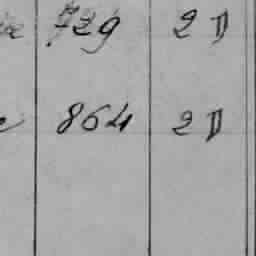 729 2 D
864 2 D